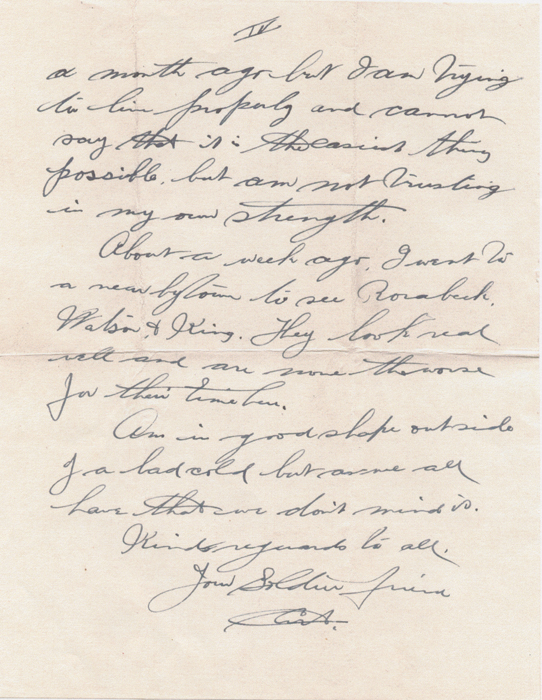 IV
a month ago but I am trying
to live properly and cannot
say that it is the easiest thing
possible, but am not trusting
in my own strength.
About a week ago, I went to
a near by town to see Rosabeck,
Watson & King. They look real
well and are none the worse
for their time here.
Am in good shape outside
of a bad cold but as we all
have that we don't mind it.
Kind reguards to all.
Your Soldier friend